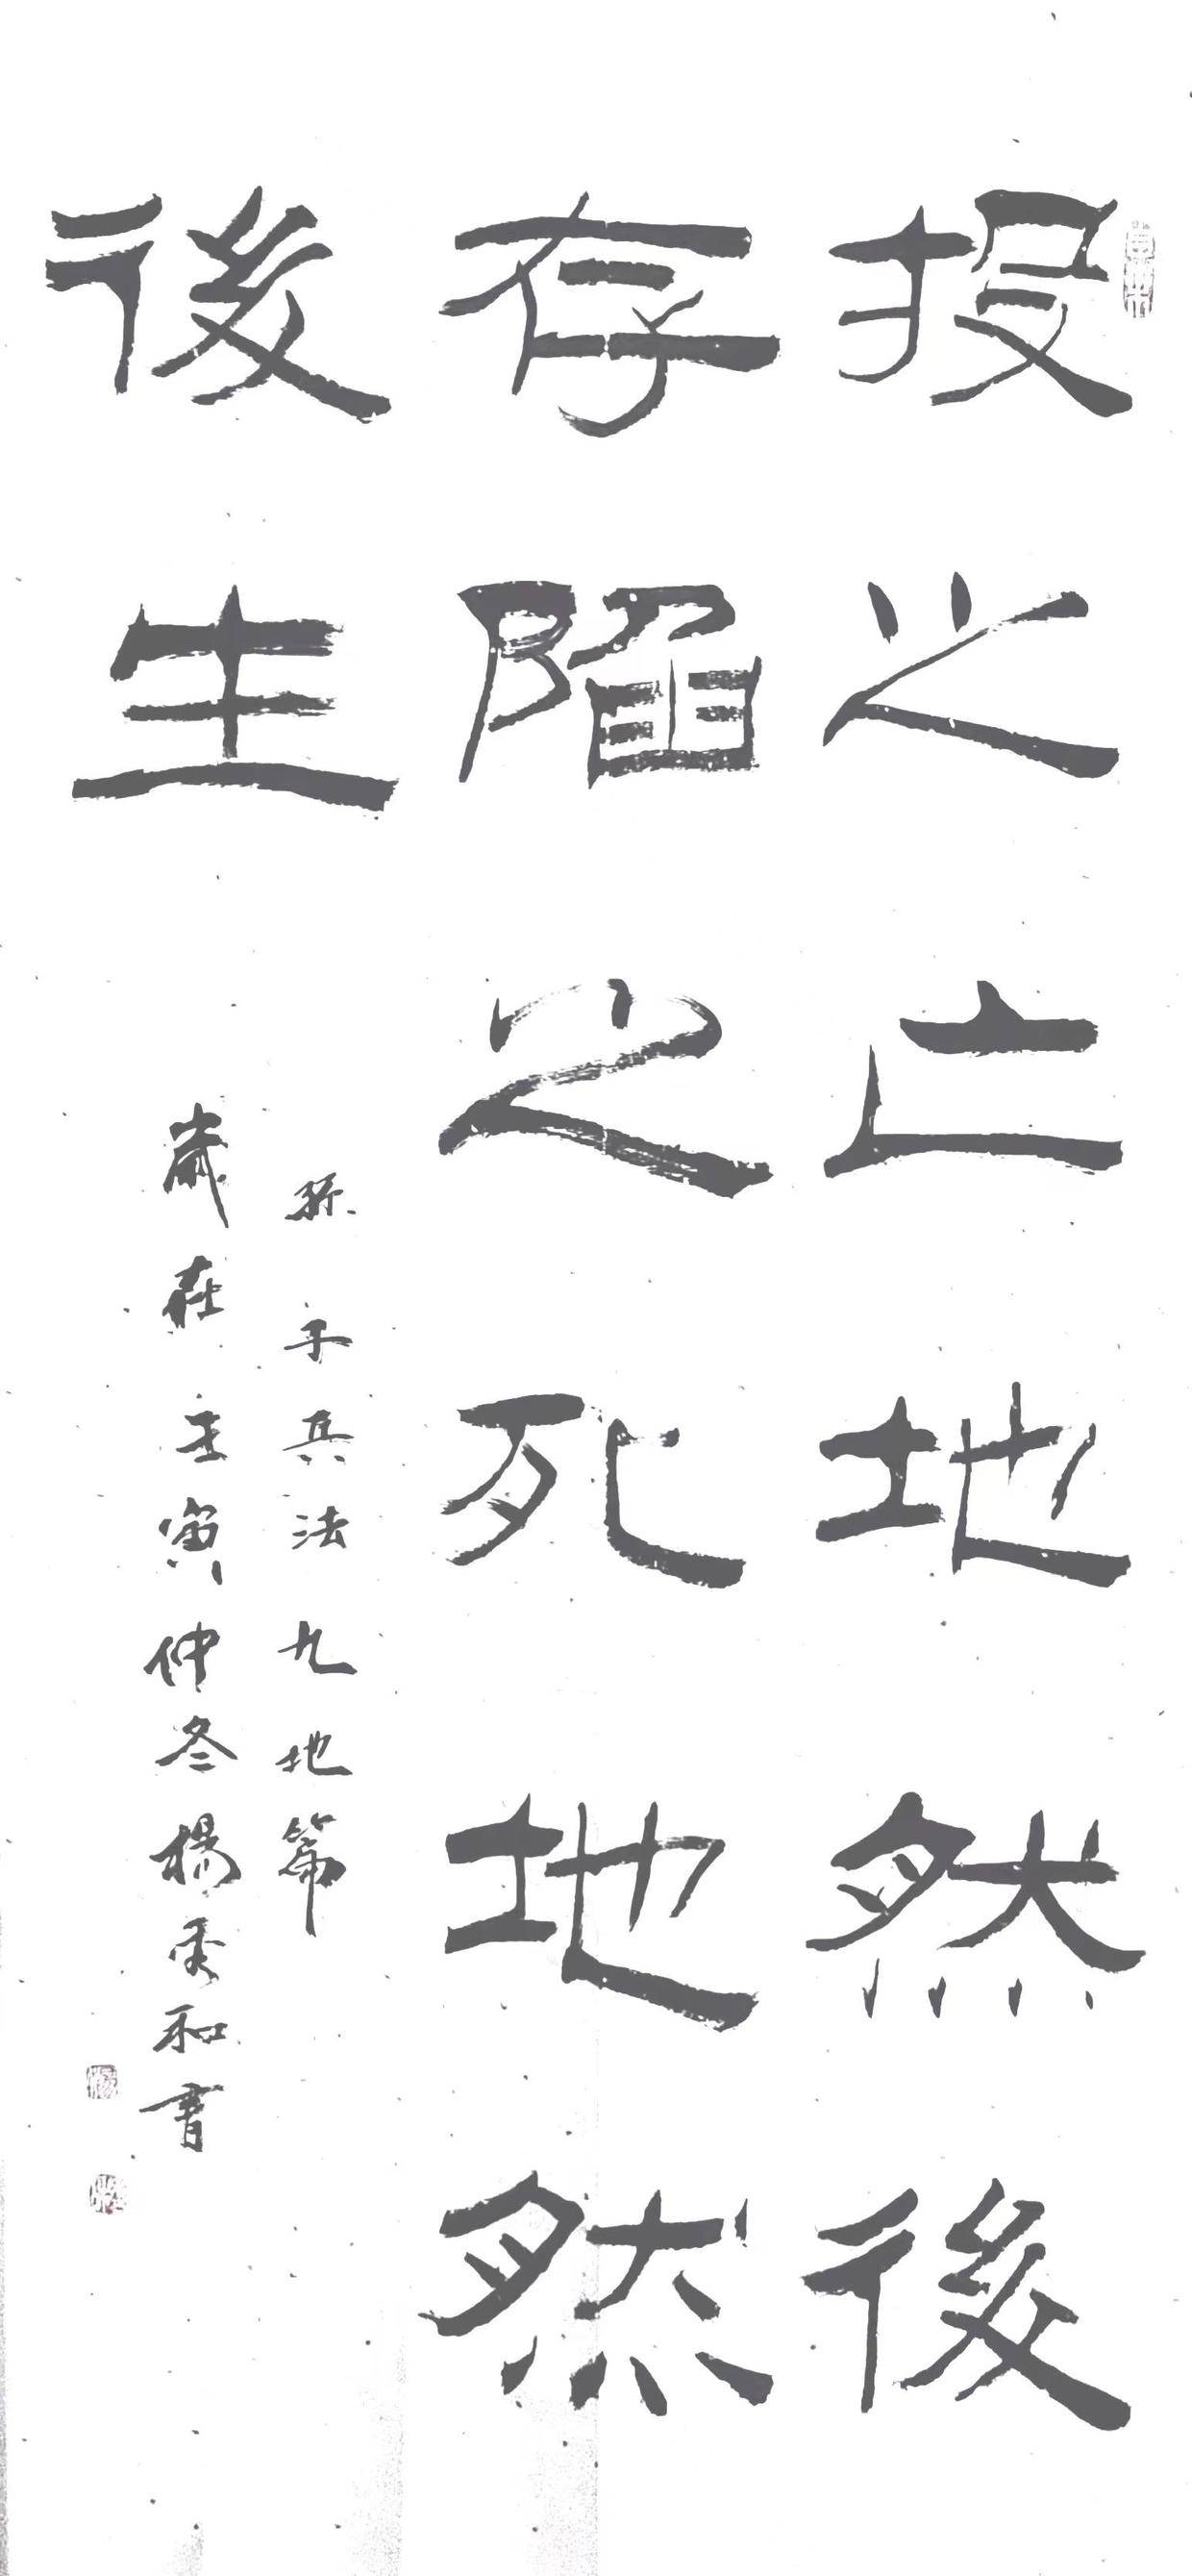 投之亡地然後
存陷之死地然
後生
孫子兵法九地篇
歲在壬寅仲冬楊秀和書